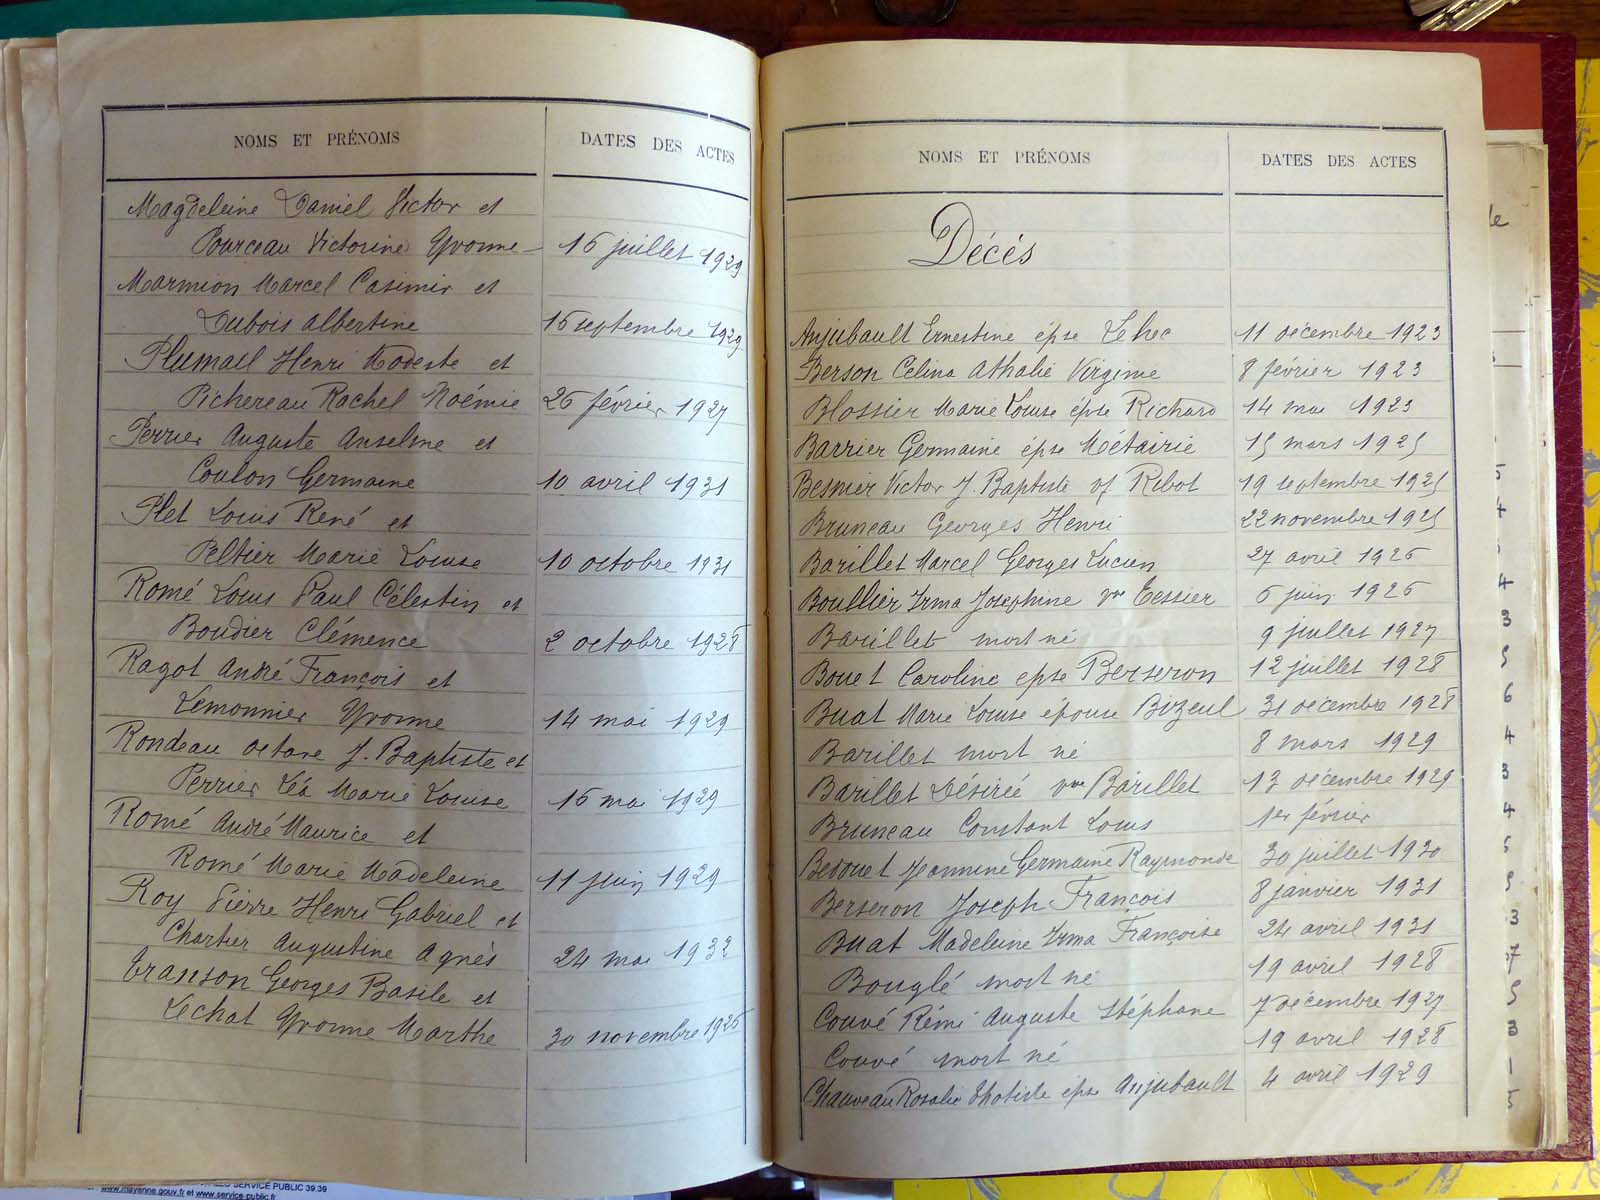 NOMS ET PRÉNOMS DATES DES ACTES
Magdeleine Daniel Victor et
Pourceau Victorine Yvonne 16 juillet 1929
Marmion Marcel Casimir et
Dubois Albertine 16 septembre 1929
Plumail Henri Modeste et
Pichereau Rachel Noémie 26 février 1927
Perrier Auguste Anselme et
Coulon Germaine 10 avril 1931
Plet Louis René et
Peltier Marie Louise 10 octobre 1931
Romé Louis Paul Célestin et
Boudier Clémence 2 octobre 1928
Ragot André François et
Lemonnier Yvonne 14 mai 1929
Rondeau Octave J. Baptiste et
Perrier Léa Marie Louise 16 mai 1929
Romé André Maurice et
Romé Marie Madeleine 11 juin 1929
Roy Pierre Henri Gabriel et
Chartier Augustine Agnès 24 mai 1932
Transon Georges Basile et
Lechat Yvonne Marthe 30 novembre 1926
NOMS ET PRÉNOMS DATES DES ACTES
Décés
Anjubault Ernestine épse Lehec 11 décembre 1923
Berson Celina Athalie Virginie 8 février 1923
Blossier Marie Louise épse Richard 14 mai 1923
Barrier Germaine épse Métairie 15 mars 1925
Besnier Victor J. Baptiste vf Ribot 19 septembre 1925
Bruneau Georges Henri 22 novembre 1925
Barillet Marcel Georges Lucien 27 avril 1926
Boullier Irma Josephine vve Tessier 6 juin 1926
Barillet mort né 9 juillet 1927
Bouet Caroline epse Berseron 12 juillet 1928
Buat Marie Louise épouse Bizeul 31 décembre 1928
Barillet mort né 8 mars 1929
Barillet Désirée vve Barillet 13 décembre 1929
Bruneau Constant Louis 1er février
Bedouet Jeannine Germaine Raymonde 30 juillet 1930
Berseron Joseph François 8 janvier 1931
Buat Madeleine Irma Françoise 24 avril 1931
Bouglé mort né 19 avril 1928
Couvé Rémi Auguste Stéphane 7 décembre 1927
Couvé mort né 19 avril 1928
Chauveau Rosalie épse Anjubault 4 avril 1929
SERVICE PUBLIC 39.39
www.mayenne.gouv.fr et www.service-public.fr